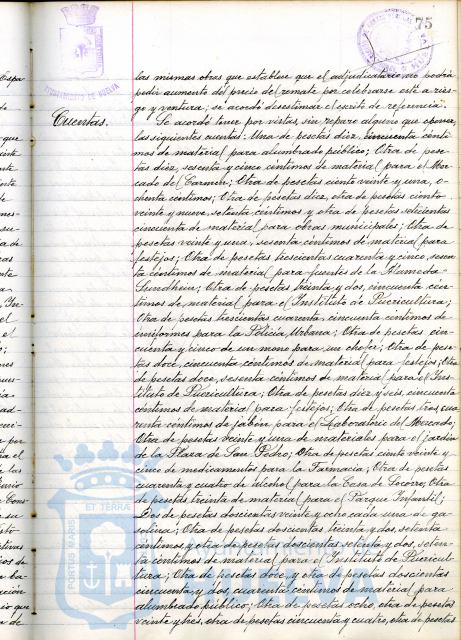 75
AYUNTAMIENTO DE HUELVA
las mismas obras que establece que el adjudicatario no podrá
pedir aumento del precio de remate por celebrarse este a ries-
go y ventura; se acordó desestimar el escrito de referencia.
Cuentas.
Se acordó tener por vistas, sin reparo alguno que oponer,
las siguientes cuentas: Una de pesetas diez, cincuenta cénti-
mos de material para alumbrado público; Otra de pese-
tas diez, sesenta y cinco céntimos de material para el Mer-
cado del Carmen; Otra de pesetas ciento veinte y una, o-
chenta céntimos; Otra de pesetas diez, otra de pesetas ciento
veinte y nueve, setenta céntimos y otra de pesetas setecientas
cincuenta de material para obras municipales; Otra de
pesetas veinte y una, sesenta céntimos de material para
festejos; Otra de pesetas trescientas cuarenta y cinco, sesen-
ta céntimos de material para fuentes de la Alameda
Sundheim; Otra de pesetas treinta y dos, cincuenta cén-
timos de material para el Instituto de Puericultura;
Otra de pesetas trescientas cuarenta, cincuenta céntimos de
uniformes para la Policía Urbana; Otra de pesetas cin-
cuenta y cinco de un mono para un chofer; Otra de pese-
tas doce, cincuenta céntimos de material para festejos; Otra
de pesetas doce, sesenta céntimos de material para el Ins-
tituto de Puericultura; Otra de pesetas diez y seis, cincuenta
céntimos de material para festejos; Otra de pesetas tres, cua-
renta céntimos de jabón para el Laboratorio del Mercado;
Otra de pesetas veinte y una de materiales para el jardin
de la Plaza de San Pedro; Otra de pesetas ciento veinte y
cinco de medicamentos para la Farmacia; Otra de pesetas
cuarenta y cuatro de para la Casa de Socorro; Otra
de pesetas treinta de material para el Parque Infantil;
Dos de pesetas doscientas veinte y ocho cada una de ga-
solina; Otra de pesetas doscientas treinta y dos, setenta
céntimos, y otra de pesetas doscientas setenta y dos, seten-
ta céntimos de material para el Instituto de Puericul-
tura; Otra de pesetas doce, y otra de pesetas doscientas
cincuenta y dos, cuarenta céntimos de material para
alumbrado público; Otra de pesetas ocho, otra de pesetas
veinte y tres, otra de pesetas cincuenta y cuatro, otra de pesetas
PORTUS MARIS ET TERRÆ